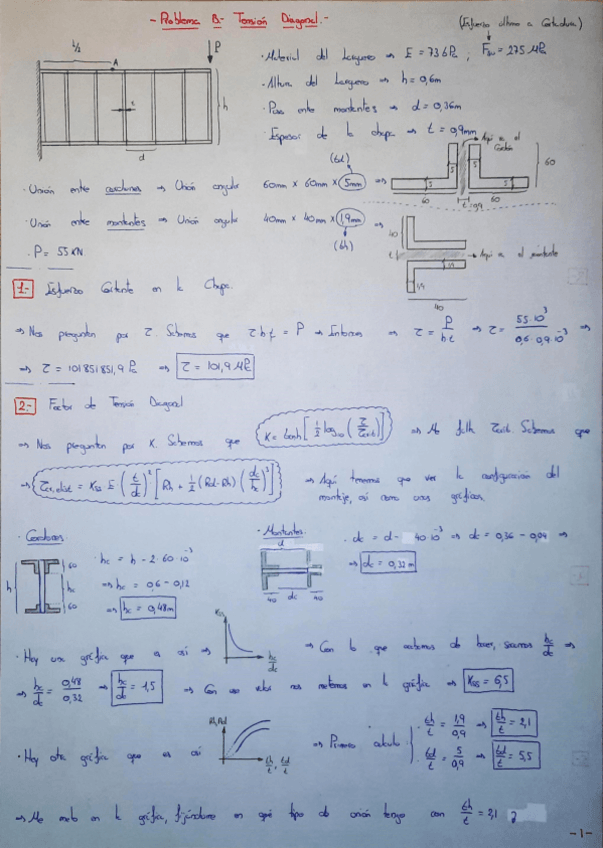 - Problema B.- Tensión Diagonal.-
(Esfuerzo último a Cortadura)
L/2
A
P
h
t
d
· Material del Larguero ⇒ E = 73 GPa ; Fsu = 275 MPa
· Altura del Larguero ⇒ h = 0,6m
· Paso entre montantes ⇒ d = 0,36m
· Espesor de la chapa ⇒ t = 0,9mm
Aquí va el Cordón
(td)
· Unión entre cordones ⇒ Unión angular 60mm x 60mm x 5mm ⇒
5
5
5
5
60
60
60
t = 0,9
· Unión entre montantes ⇒ Unión angular 40mm x 40mm x 1,9mm ⇒
(th)
40
t
Aquí va el montante
1,9
1,9
40
· P = 55 KN
1.- Esfuerzo Cortante en la Chapa.
⇒ Nos preguntan por τ. Sabemos que τ h t = P ⇒ Entonces ⇒ τ = P / h t ⇒ τ = 55·10³ / 0,6·0,9·10⁻³ ⇒
⇒ τ = 101851851,9 Pa ⇒ τ = 101,9 MPa
2.- Factor de Tensión Diagonal
⇒ Nos preguntan por K. Sabemos que K = tanh [ 1/2 log₁₀ ( τ / τcrit ) ] ⇒ Me falta τcrit. Sabemos que
⇒ τcr,elast = Kss E ( t / dc )² [ Rh + 1/2 (Rd - Rh) ( dc / hc )³ ] ⇒ Aquí tenemos que ver la configuración del
montaje, así como unas gráficas.
· Cordones:
h
60
hc
60
· hc = h - 2·60·10⁻³
⇒ hc = 0,6 - 0,12
⇒ hc = 0,48m
· Montantes:
d
40
dc
40
· dc = d - 40·10⁻³ ⇒ dc = 0,36 - 0,04 ⇒
⇒ dc = 0,32m
· Hay una gráfica que es así ⇒
Kss
hc / dc
⇒ Con lo que acabamos de hacer, sacamos hc / dc ⇒
⇒ hc / dc = 0,48 / 0,32 ⇒ hc / dc = 1,5 ⇒ Con ese valor nos metemos en la gráfica ⇒ Kss = 6,5
· Hay otra gráfica que es así
Rh, Rd
th / t , td / t
⇒ Primero calculo
· th / t = 1,9 / 0,9 ⇒ th / t = 2,1
· td / t = 5 / 0,9 ⇒ td / t = 5,5
⇒ Me meto en la gráfica, fijándome en qué tipo de unión tengo con th / t = 2,1 y
- 1 -